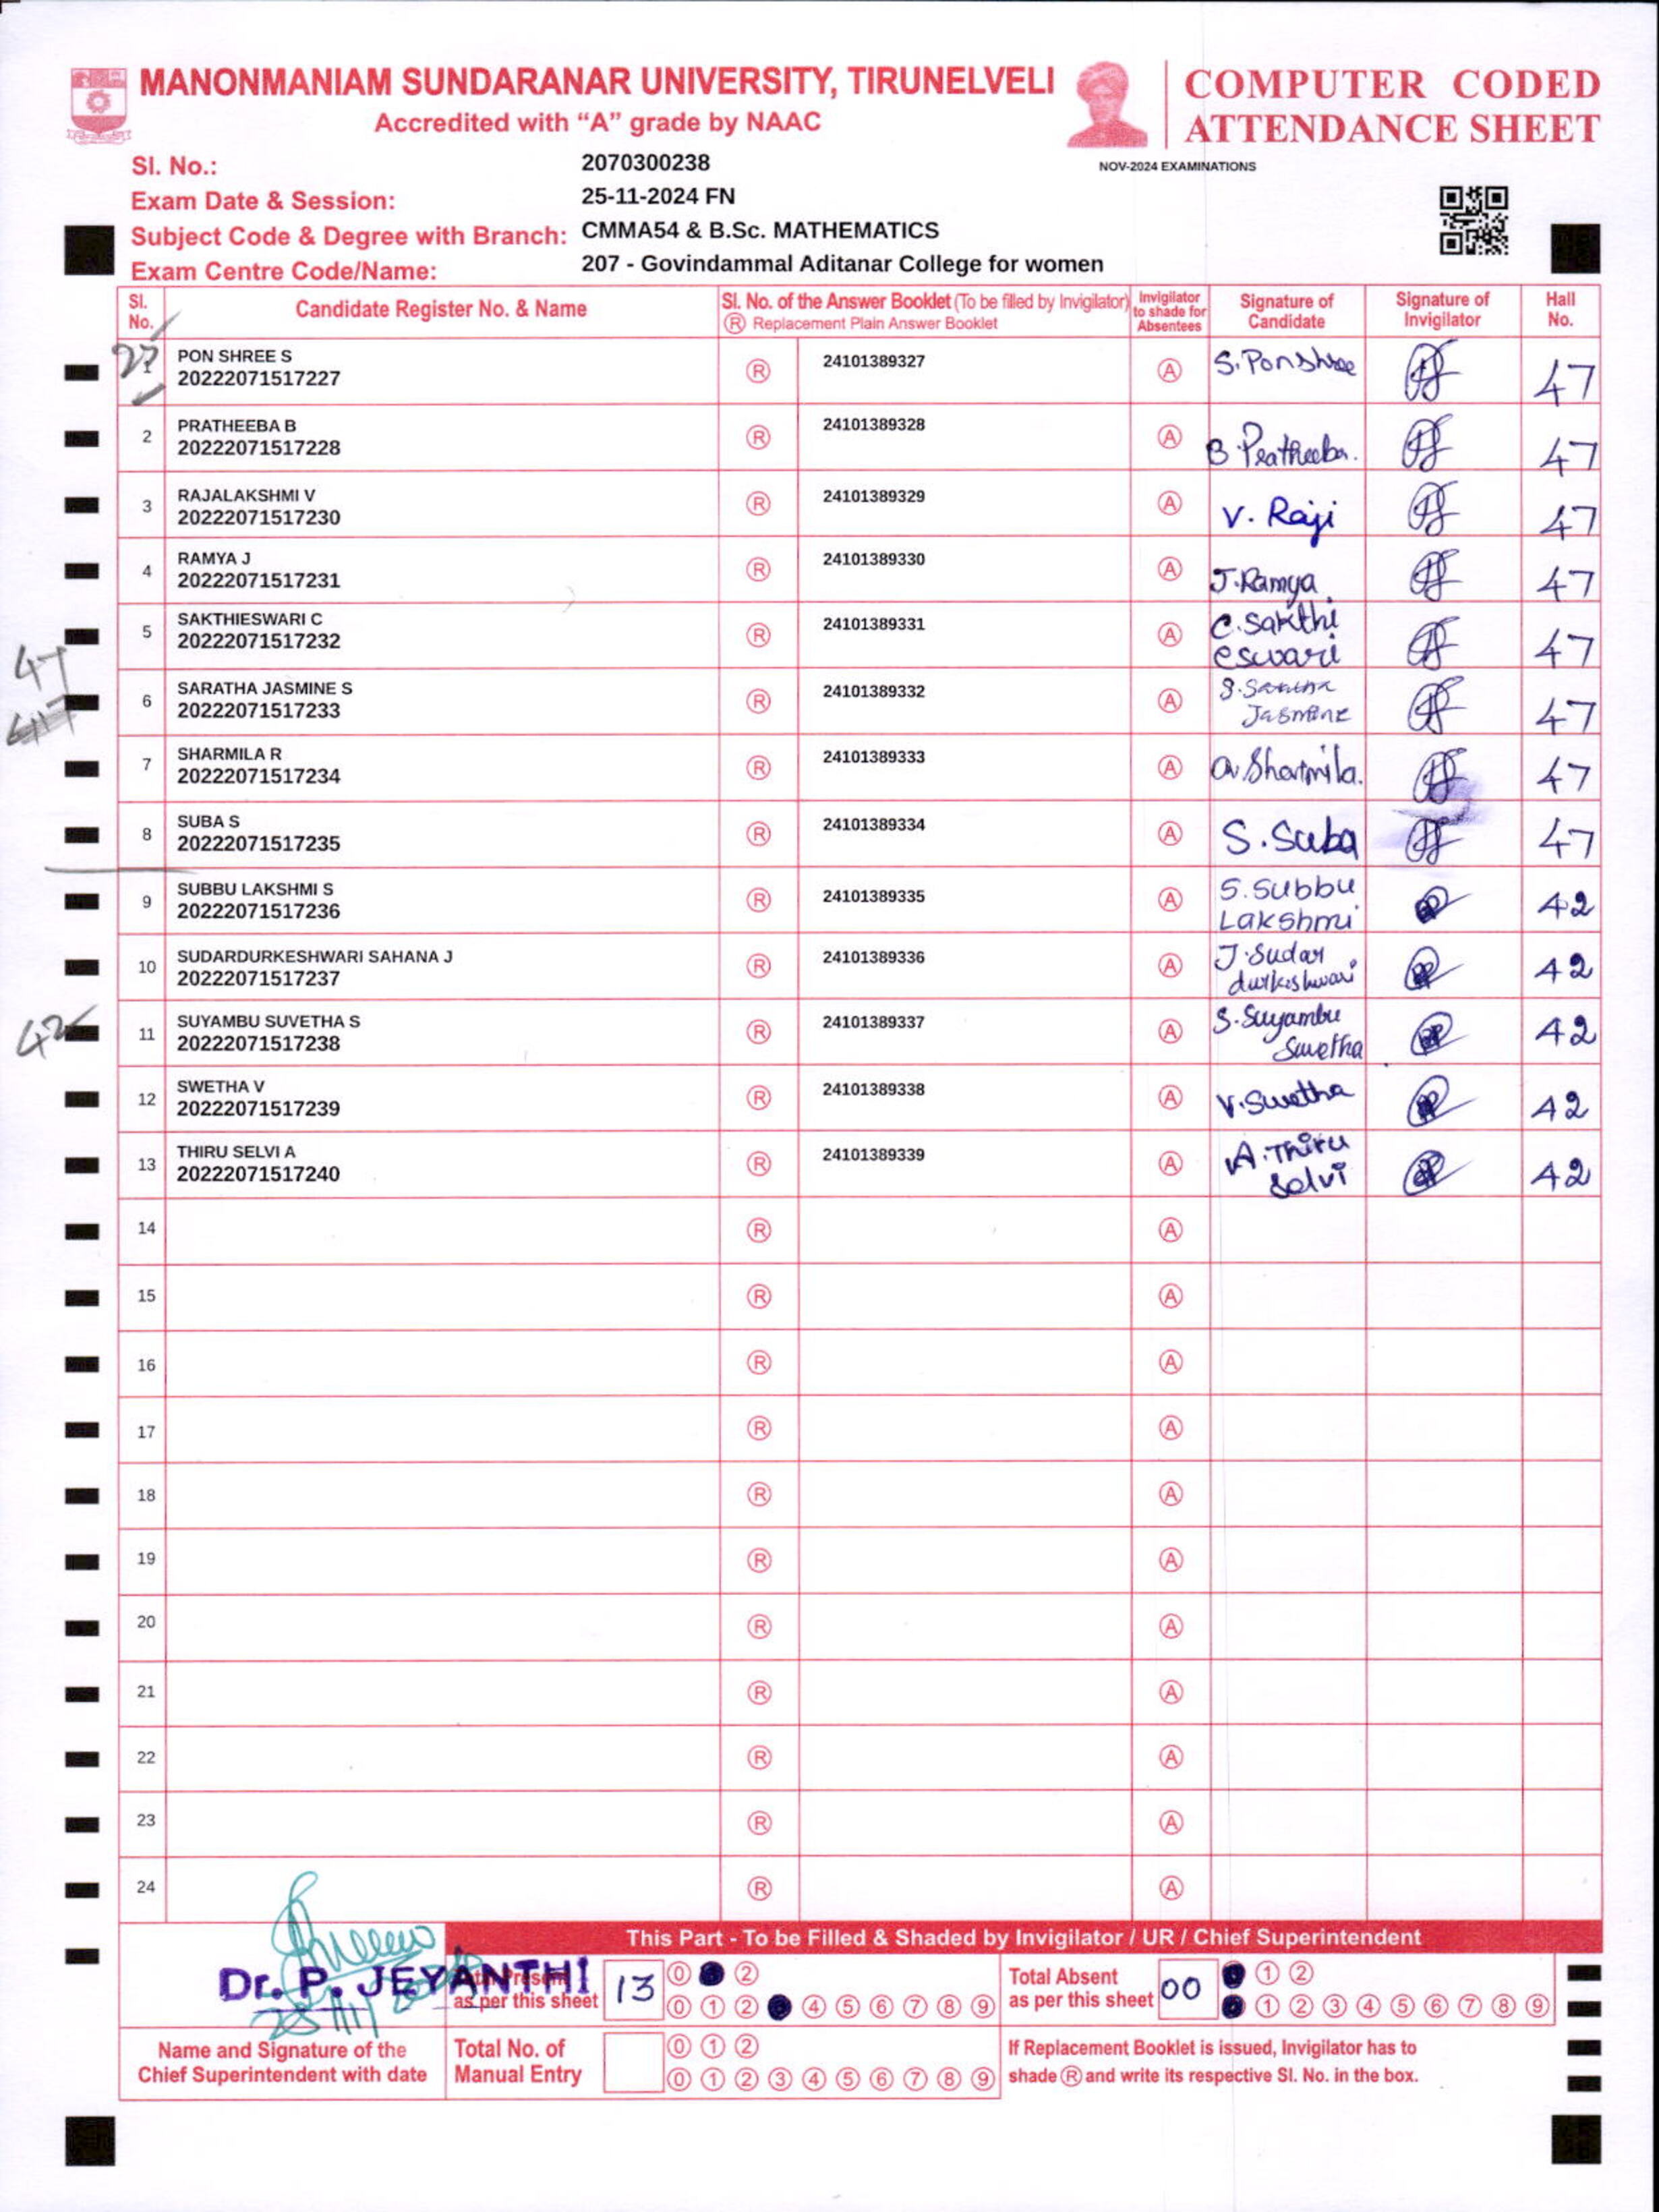 MANONMANIAM SUNDARANAR UNIVERSITY, TIRUNELVELI
Accredited with “A” grade by NAAC
COMPUTER CODED
ATTENDANCE SHEET
NOV-2024 EXAMINATIONS
Sl. No.: 2070300238
Exam Date & Session: 25-11-2024 FN
Subject Code & Degree with Branch: CMMA54 & B.Sc. MATHEMATICS
Exam Centre Code/Name: 207 - Govindammal Aditanar College for women
Sl. No. Candidate Register No. & Name Sl. No. of the Answer Booklet (To be filled by Invigilator) Ⓡ Replacement Plain Answer Booklet Invigilator to shade for Absentees Signature of Candidate Signature of Invigilator Hall No.
PON SHREE S
20222071517227 Ⓡ 24101389327 Ⓐ S. Ponshree 47
2 PRATHEEBA B
20222071517228 Ⓡ 24101389328 Ⓐ B. Pratheeba. 47
3 RAJALAKSHMI V
20222071517230 Ⓡ 24101389329 Ⓐ V. Raji 47
4 RAMYA J
20222071517231 Ⓡ 24101389330 Ⓐ J. Ramya 47
5 SAKTHIESWARI C
20222071517232 Ⓡ 24101389331 Ⓐ C. Sakthi eswari 47
47
6 SARATHA JASMINE S
20222071517233 Ⓡ 24101389332 Ⓐ S. Saratha Jasmine 47
7 SHARMILA R
20222071517234 Ⓡ 24101389333 Ⓐ Sharmila. 47
8 SUBA S
20222071517235 Ⓡ 24101389334 Ⓐ S. Suba 47
9 SUBBU LAKSHMI S
20222071517236 Ⓡ 24101389335 Ⓐ S. Subbu Lakshmi 42
10 SUDARDURKESHWARI SAHANA J
20222071517237 Ⓡ 24101389336 Ⓐ J. Sudar durkeshwari 42
42
11 SUYAMBU SUVETHA S
20222071517238 Ⓡ 24101389337 Ⓐ S. Suyambu Suvetha 42
12 SWETHA V
20222071517239 Ⓡ 24101389338 Ⓐ V. Swetha 42
13 THIRU SELVI A
20222071517240 Ⓡ 24101389339 Ⓐ A. Thiru Selvi 42
14 Ⓡ Ⓐ
15 Ⓡ Ⓐ
16 Ⓡ Ⓐ
17 Ⓡ Ⓐ
18 Ⓡ Ⓐ
19 Ⓡ Ⓐ
20 Ⓡ Ⓐ
21 Ⓡ Ⓐ
22 Ⓡ Ⓐ
23 Ⓡ Ⓐ
24 Ⓡ Ⓐ
This Part - To be Filled & Shaded by Invigilator / UR / Chief Superintendent
Dr. P. JEYANTHI
Name and Signature of the
Chief Superintendent with date
Total Present
as per this sheet 13
0 2
0 1 2 4 5 6 7 8 9
Total Absent
as per this sheet 00
1 2
1 2 3 4 5 6 7 8 9
Total No. of
Manual Entry
0 1 2
0 1 2 3 4 5 6 7 8 9
If Replacement Booklet is issued, Invigilator has to
shade Ⓡ and write its respective Sl. No. in the box.